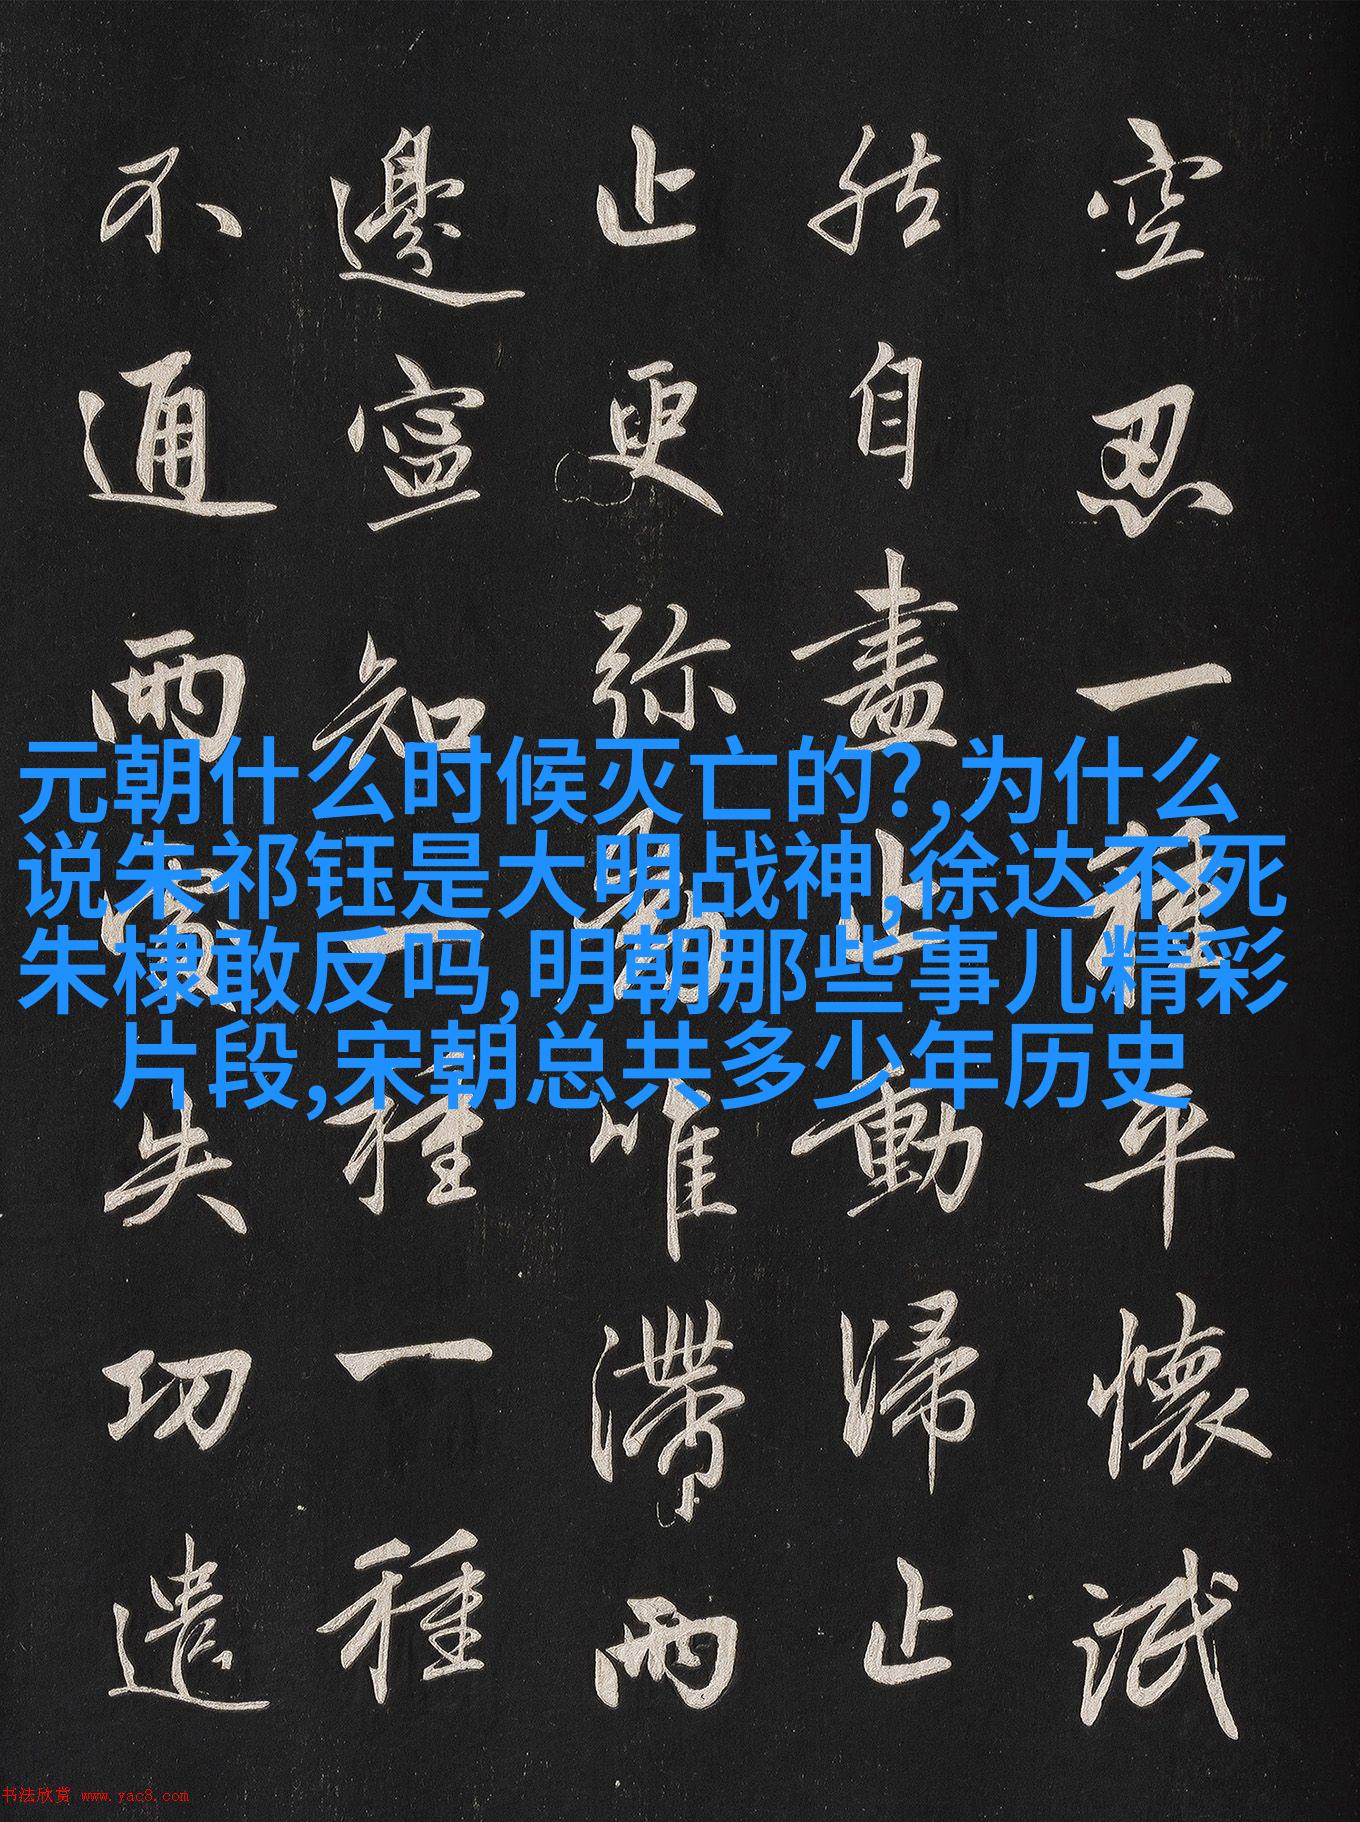 空忍一種平懷泯
然自盡止動歸止
止更弥動唯滯兩
邊寧知一種一種
不通兩處失功遣
元朝什么时候灭亡的?,为什么
说朱祁钰是大明战神,徐达不死
朱棣敢反吗,明朝那些事儿精彩
片段,宋朝总共多少年历史
书法欣赏 www.yac8.com